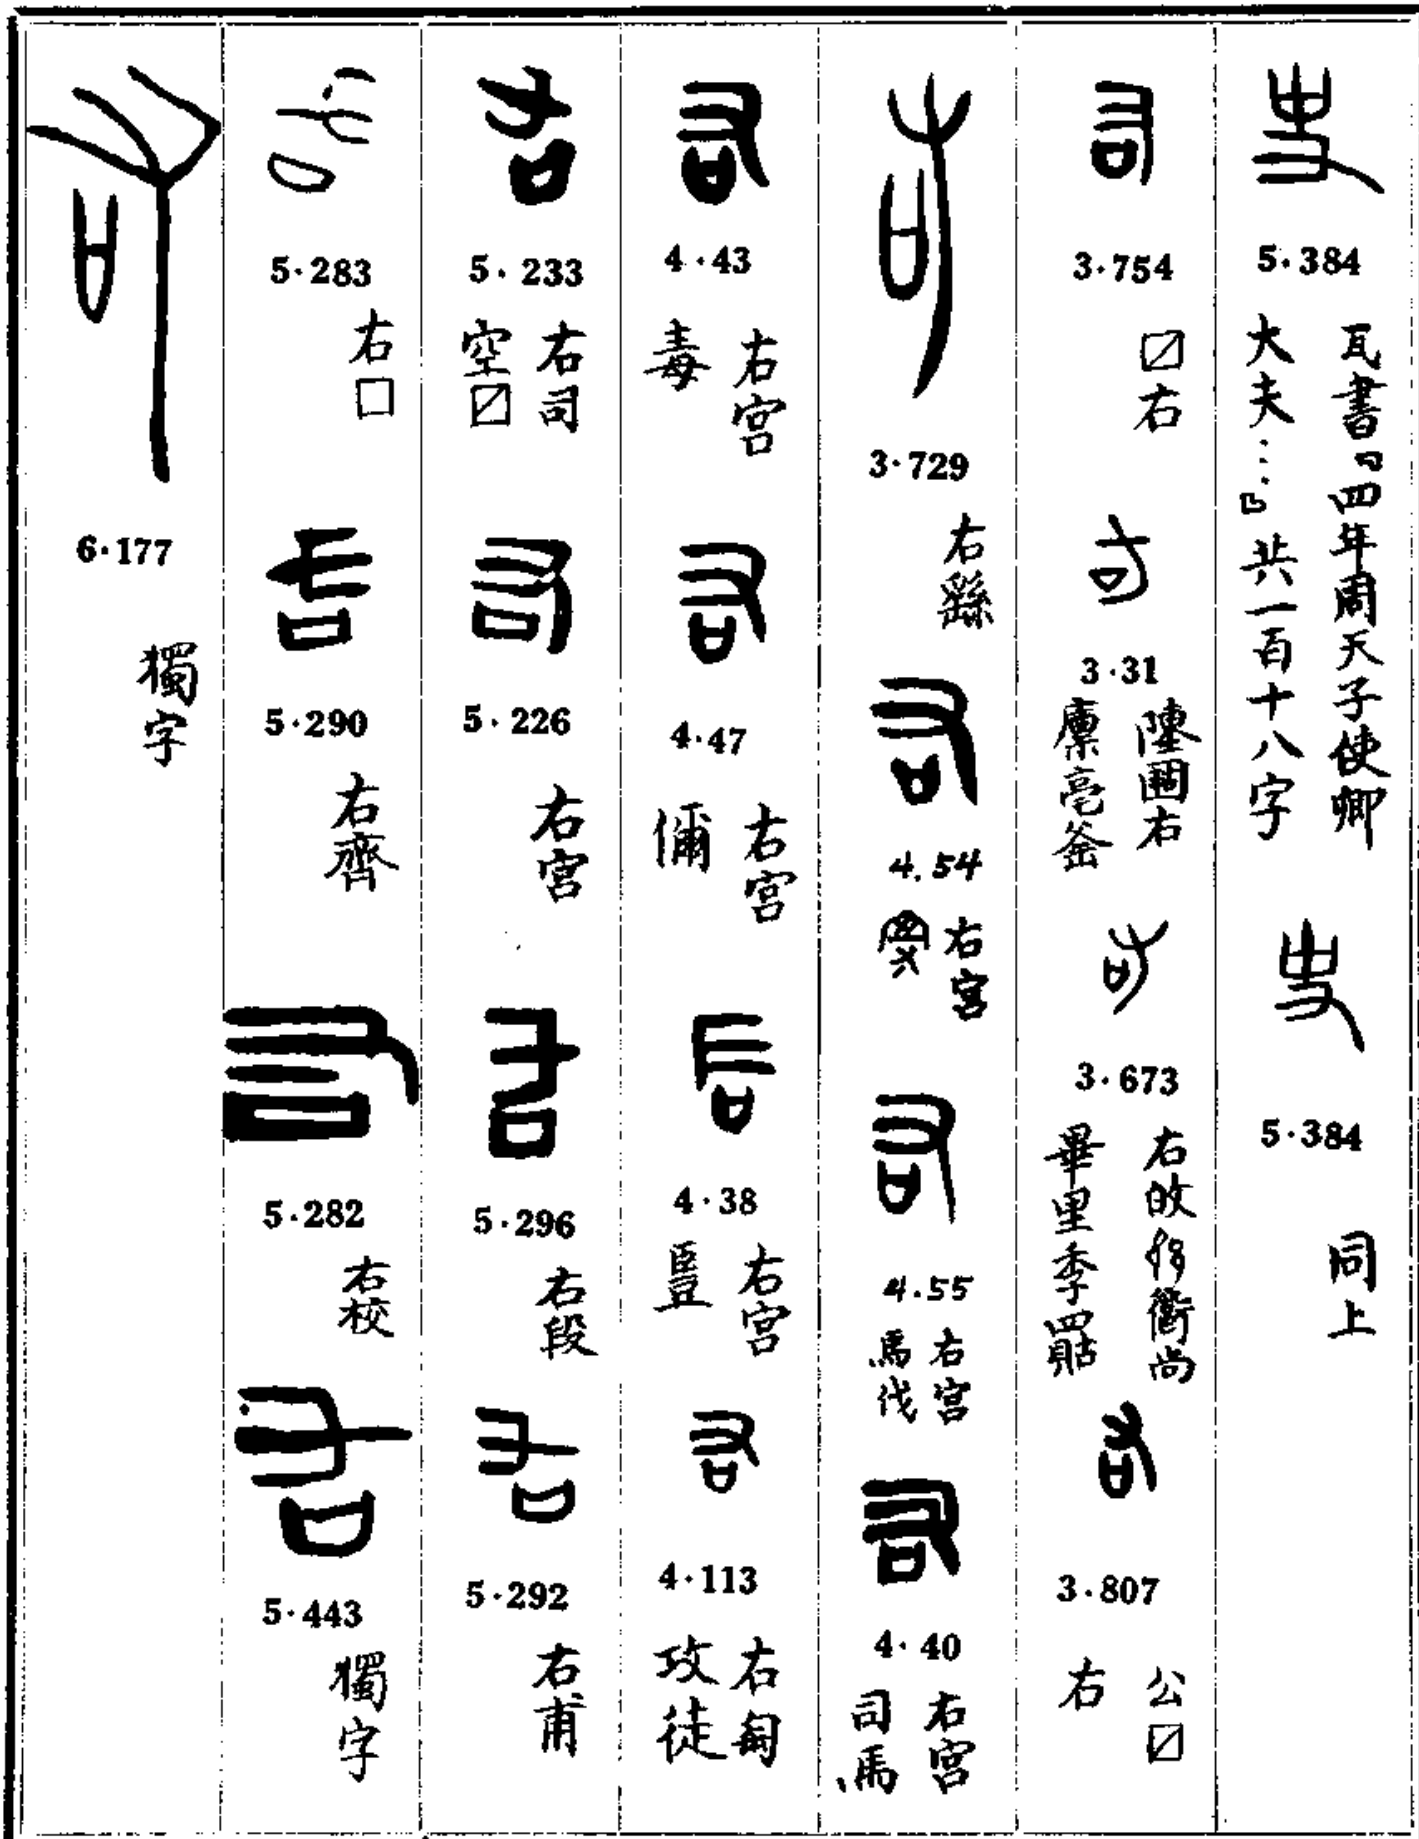 5·384
瓦書『四年周天子使卿
大夫……』共一百十八字
5·384
同上
3·754
☑右
3·31
右
廪亳釜
3·673
右
畢里季
3·807
公☑
右
3·729
右
4.54
右宮
4.55
右宮
馬伐
4·40
右宮
司馬
4·43
右宮
毒
4·47
右宮
㑌
4·38
右宮
4·113
右匋
攻徒
5·233
右司
空☑
5·226
右宮
5·296
右段
5·292
右甫
5·283
右□
5·290
右齊
5·282
右校
5·443
獨字
6·177
獨字